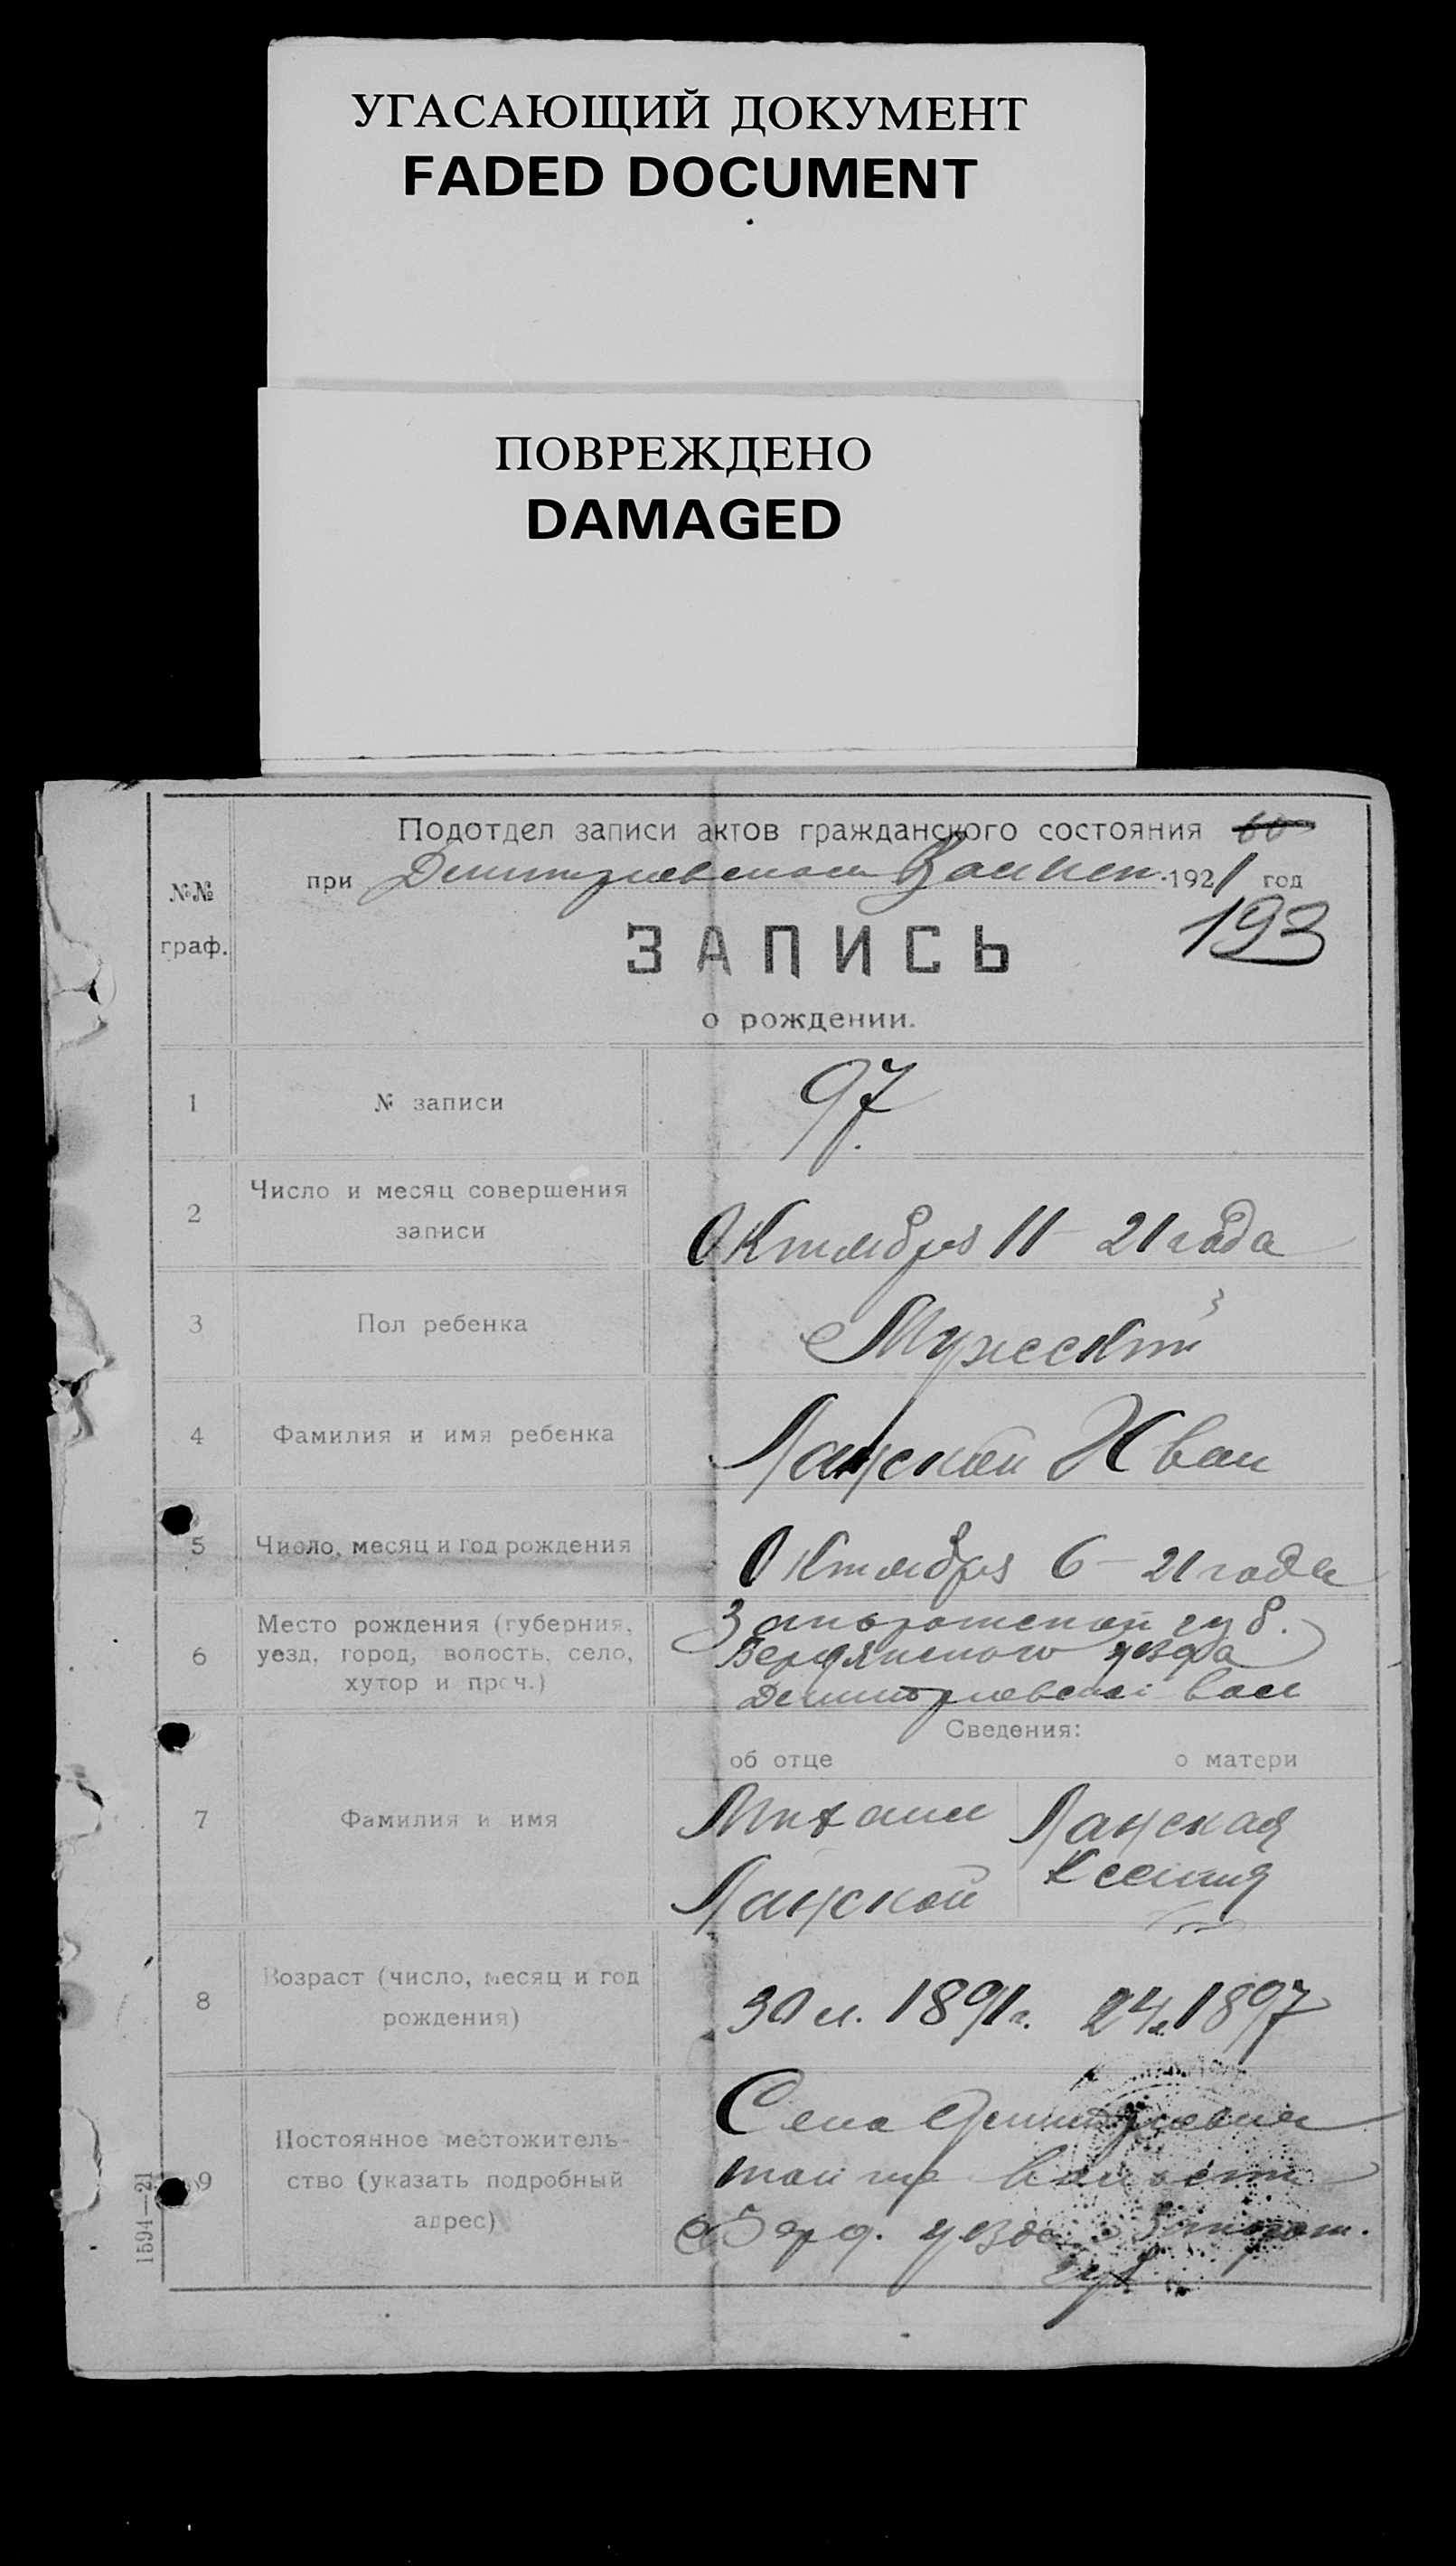 УГАСАЮЩИЙ ДОКУМЕНТ
FADED DOCUMENT
ПОВРЕЖДЕНО
DAMAGED
Подотдел записи актов гражданского состояния 60
при Дмитриевском 1921 год
№№
граф.
193
ЗАПИСЬ
о рождении.
1 № записи 97
2 Число и месяц совершения
записи
Октября 11 - 21 года
3 Пол ребенка Мужеский
4 Фамилия и имя ребенка Лацкой Иван
5 Число, месяц и год рождения Октября 6 - 21 года
6 Место рождения (губерния,
уезд, город, волость, село,
хутор и проч.)
Запорожской губ.
Бердянского уезда
Дмитриевской вол
Сведения:
об отце о матери
7 Фамилия и имя
Михаил
Лацской
Лацская
Ксения
8 Возраст (число, месяц и год
рождения)
30 л. 1891 г. 24 л. 1897
9 Постоянное местожитель-
ство (указать подробный
адрес)
Село Дмитриевка
той же волости
Берд. уезда Запорож.
Губ
1594—21